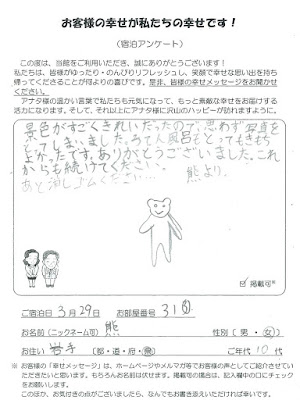 お客様の幸せが私たちの幸せです！
（宿泊アンケート）
この度は、当館をご利用いただき、誠にありがとうございます！
私たちは、皆様がゆったり・のんびりリフレッシュし、笑顔で幸せな思い出を持ち
帰ってくださることが何よりの喜びです。是非、皆様の幸せメッセージをお聞かせ
ください。
アナタ様の温かい言葉で私たちも元気になって、もっと素敵な幸せをお届けする
活力になります。そして、それ以上にアナタ様に沢山のハッピーが訪れますように。
景色がすごくきれいだったので、思わず写真を
とってしまいました。ろてん風呂もとってもきもち
よかったです。ありがとうございました。これ
からも続けてください。
あと消しゴムください… 熊より。
☑ 掲載可※
ご宿泊日 3月29日 お部屋番号 31
お名前（ニックネーム可） 熊 性別（ 男 ・ 女 ）
お住い 岩手 （ 都 ・ 道 ・ 府 ・ 県 ） ご年代 10 代
※ お客様の「幸せメッセージ」は、ホームページやメルマガ等でお客様の声としてご紹介させてい
ただきたいと思います。もちろんお名前は伏せます。掲載可の場合は、記入欄中の□にチェック
をお願いします。
このほか、お気付きの点がございましたら、なんでもお書き添えいただければ幸いです。